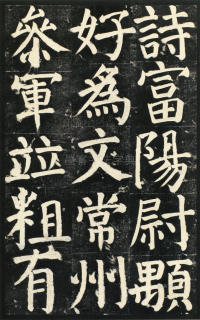 詩富陽尉顆
好為文常州
叅軍竝粗有